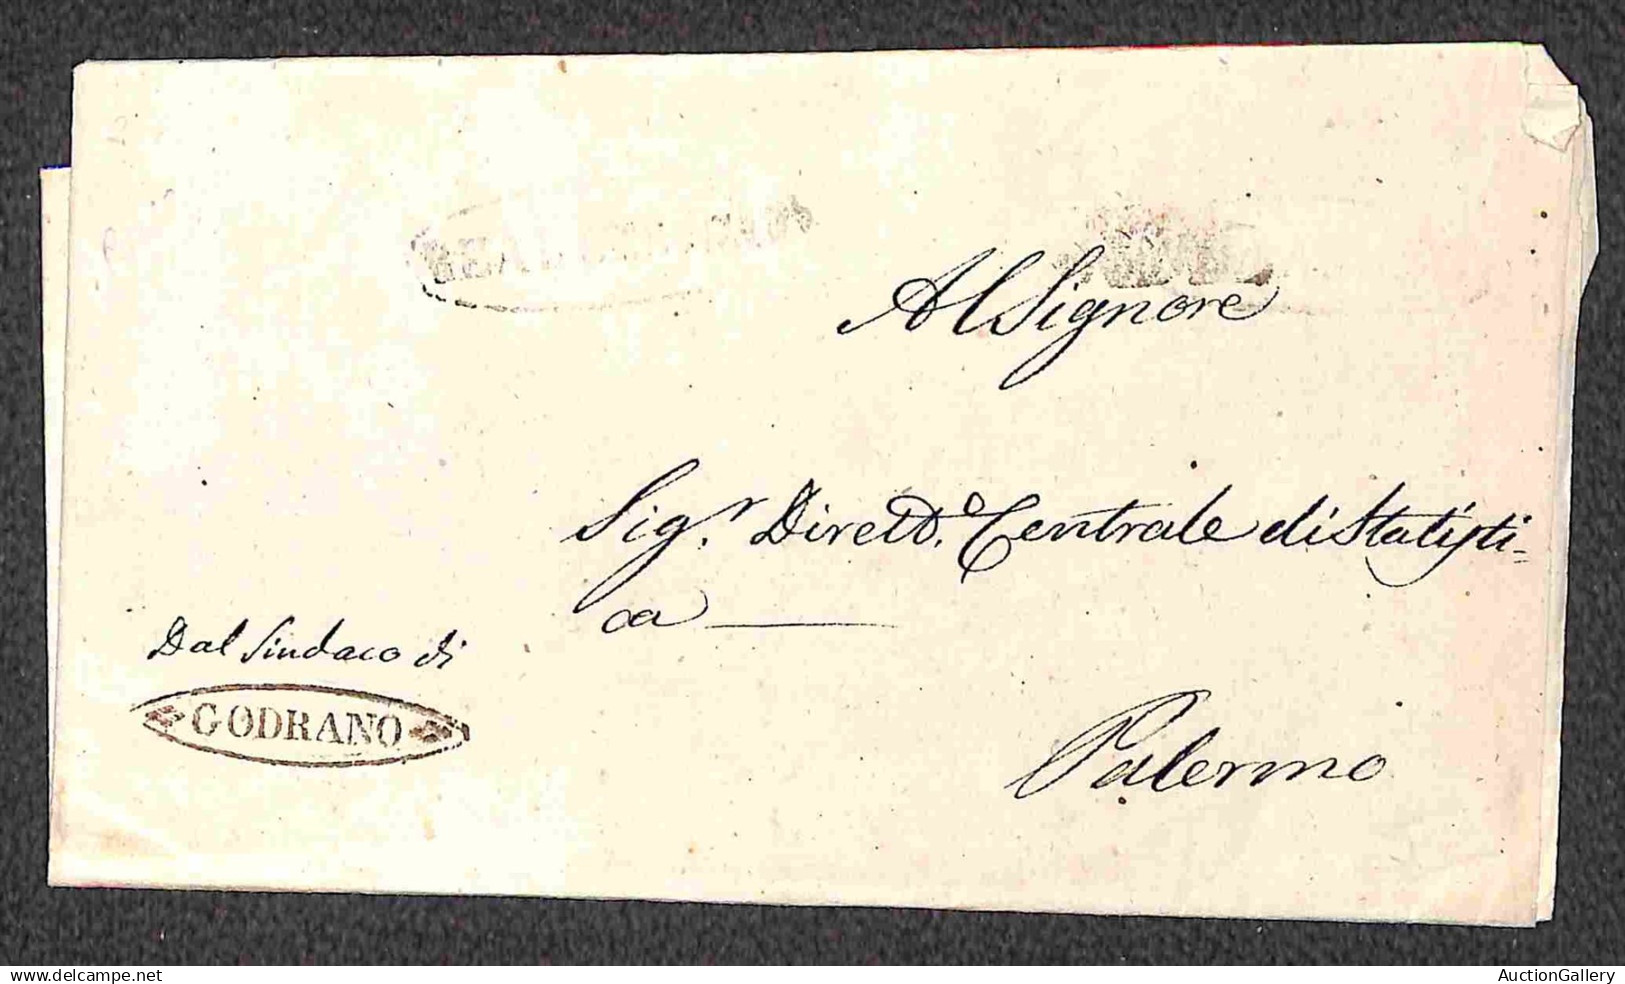 Al Signore
Sig.r Dirett.e Centrale di Statisti=
ca
Palermo
Dal Sindaco di
GODRANO
AuctionGallery